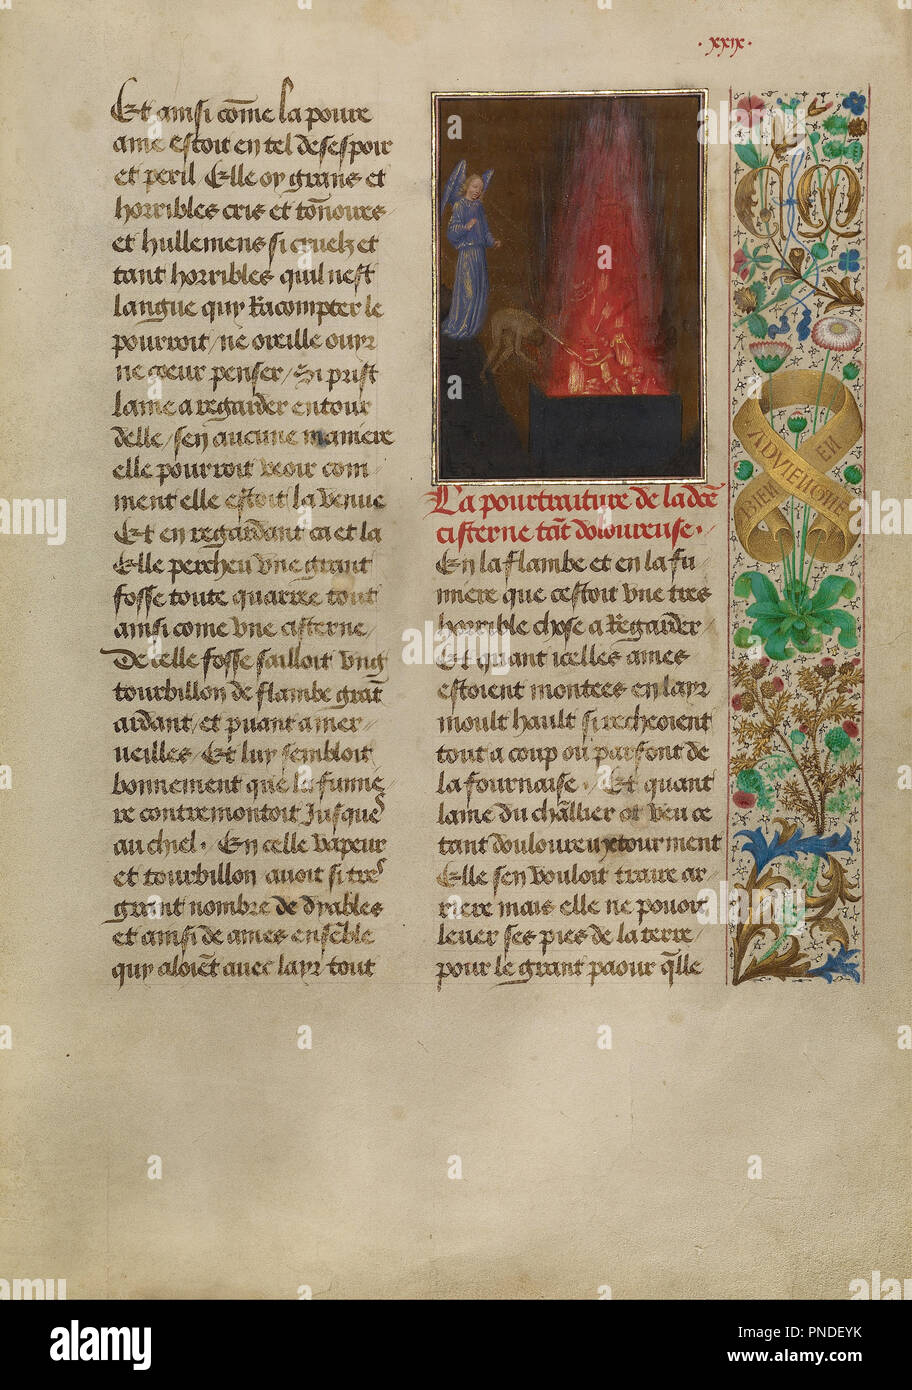 · xxix ·
Et ainsi cōme la poure
ame estoit en tel desespoir
et peril Elle oy grans et
horribles cris et tōnoires
et hullemens si cruelz et
tant horribles quil nest
langue quy Racompter le
pourroit / ne oreille ouyr
ne coeur penser / Si prist
lame a regarder entour
delle / sen aucune maniere
elle pourroit veoir com-
ment elle estoit la venue
Et en regardant ca et la
Elle percheu vne grant
fosse toute quarree tout
ainsi come vne cisterne /
De celle fosse sailloit vng
tourbillon de flambe grāt
ardant / et puant a mer-
ueilles / Et luy sembloit
bonnement que la fumie-
re contremontoit Jusques
au chiel · En celle vapeur
et tourbillon auoit si tres
grant nombre de dyables
et ainsi de ames ensēble
quy aloiēt auec layr tout
La pourtraiture de la dcē
cisterne tāt doloureuse ·
En la flambe et en la fu-
miere que cestoit vne tres
horrible chose a Regarder /
Et quant icelles ames
estoient montees en layr
moult hault si recheoient
tout a coup ou parfont de
la fournaise · Et quant
lame du chāllier ot veu ce
tant douloureux tourment
Elle sen vouloit traire ar-
riere mais elle ne pouoit
leuer ses pies de la terre /
pour le grant paour qlle
C M
ADVIENGNE
BIEN EN
alamy
Image ID: PNDEYK
www.alamy.com